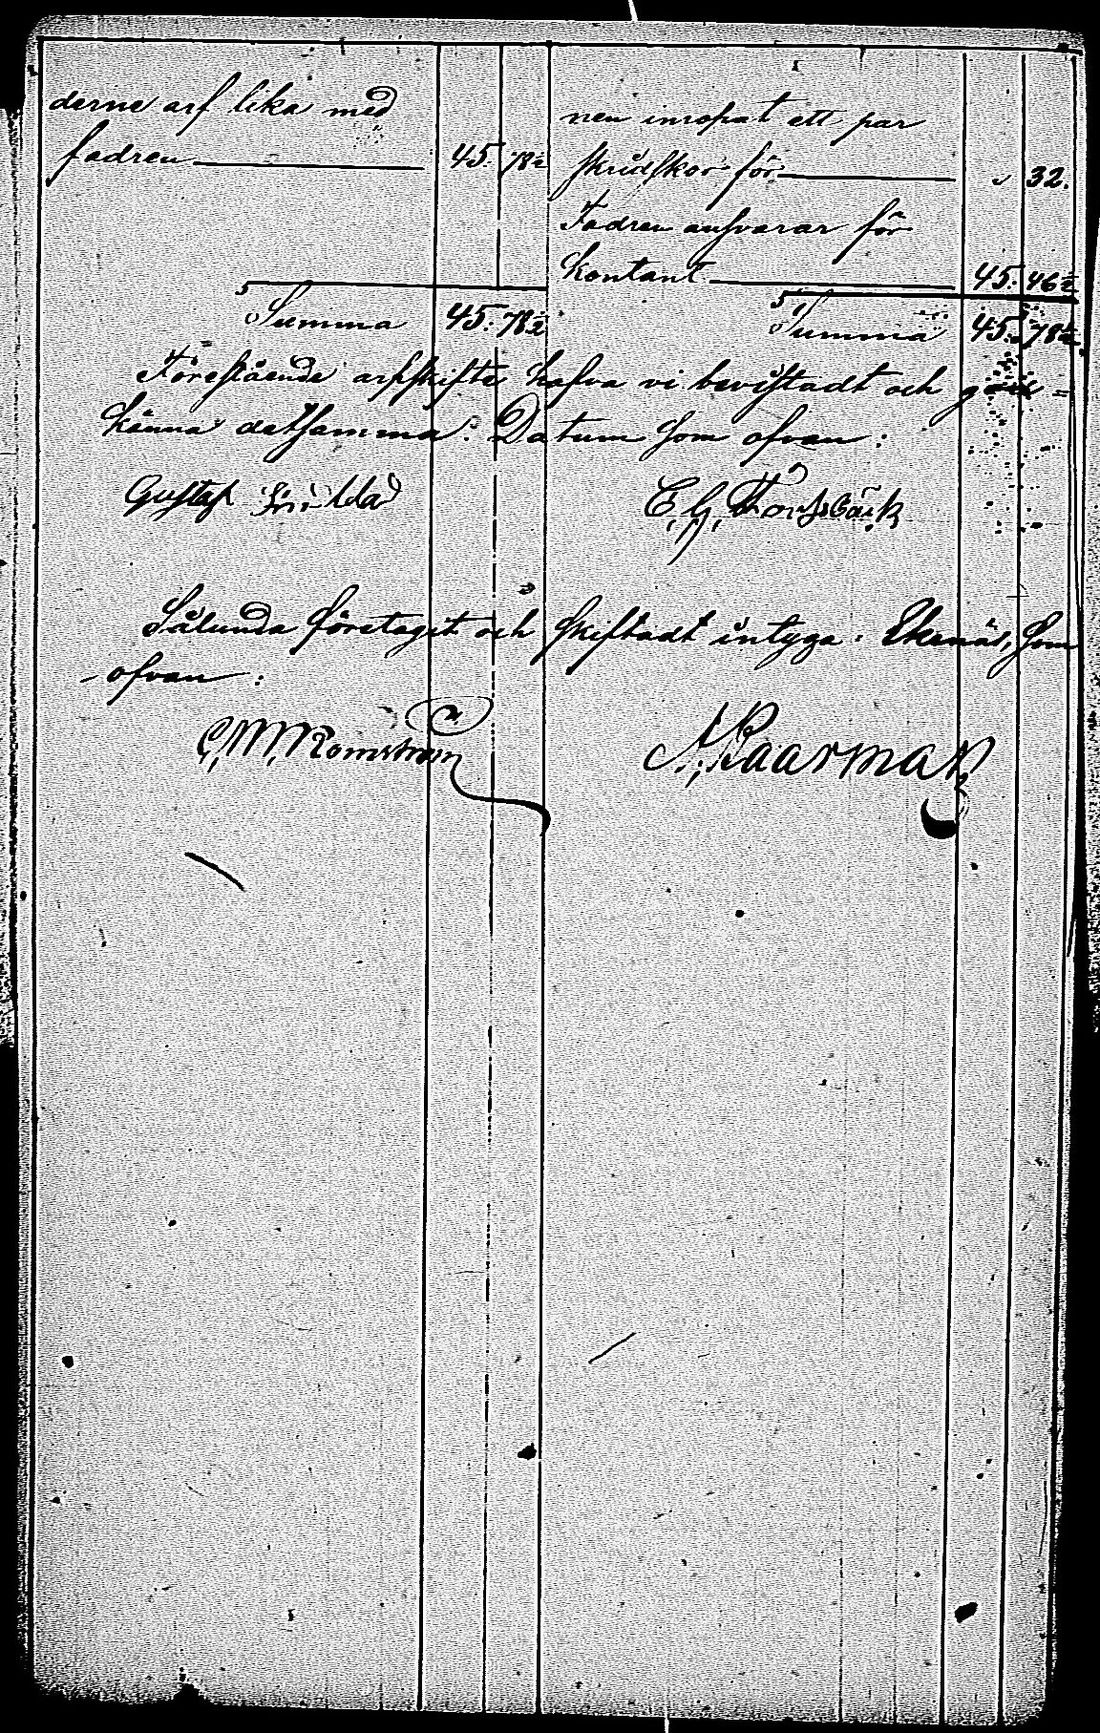 derne arf lika med
fadren 45. 78½
Summa 45. 78½
nen inropat ett par
skridskor för " 32.
Fadren ansvarar för
kontant 45. 46½
Summa 45. 78½
Förestående arfskifte hafva vi bevistadt och god-
känna detsamma. Datum som ofvan:
Gustaf
E. G. Forssbäck
Sålunda företaget och skiftadt intyga. Ekenäs, som
ofvan:
C. W. Romström
A. Kaarman